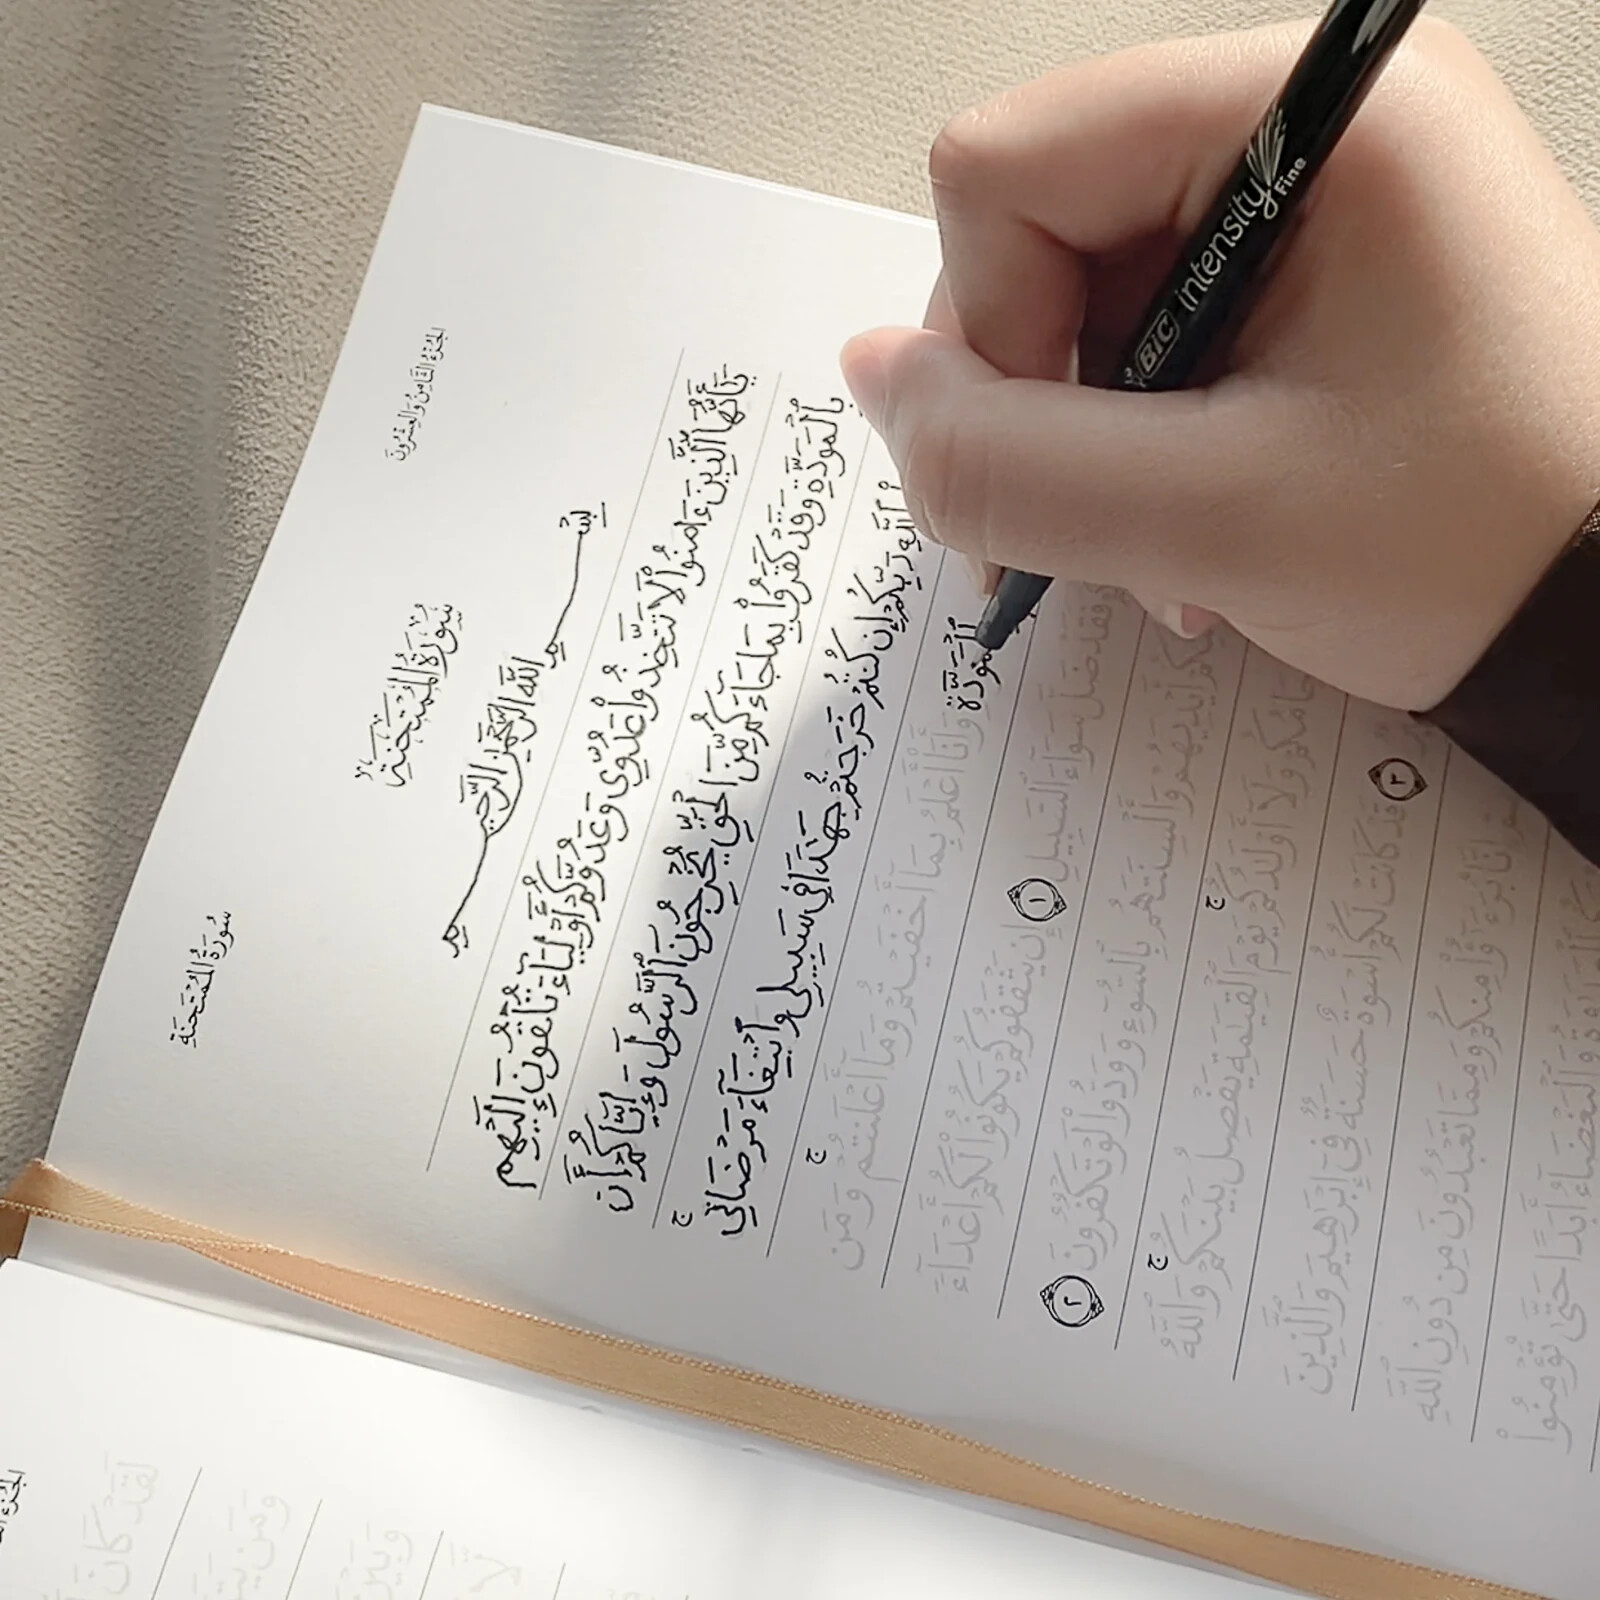 الجزء الثامن والعشرون
سورة الممتحنة
سورة الممتحنة
بسم الله الرحمن الرحيم
يَٰٓأَيُّهَا ٱلَّذِينَ ءَامَنُوا۟ لَا تَتَّخِذُوا۟ عَدُوِّى وَعَدُوَّكُمْ أَوْلِيَآءَ تُلْقُونَ إِلَيْهِم
بِٱلْمَوَدَّةِ وَقَدْ كَفَرُوا۟ بِمَا جَآءَكُم مِّنَ ٱلْحَقِّ يُخْرِجُونَ ٱلرَّسُولَ وَإِيَّاكُمْ أَن
ٱللَّهِ رَبِّكُمْ إِن كُنتُمْ خَرَجْتُمْ جِهَٰدًا فِى سَبِيلِى وَٱبْتِغَآءَ مَرْضَاتِى ج
ٱلْمَوَدَّةِ وَأَنَا۠ أَعْلَمُ بِمَآ أَخْفَيْتُمْ وَمَآ أَعْلَنتُمْ ج وَمَن
فَقَدْ ضَلَّ سَوَآءَ ٱلسَّبِيلِ ١ إِن يَثْقَفُوكُمْ يَكُونُوا۟ لَكُمْ أَعْدَآءً
أَيْدِيَهُمْ وَأَلْسِنَتَهُم بِٱلسُّوٓءِ وَوَدُّوا۟ لَوْ تَكْفُرُونَ ٢
أَرْحَامُكُمْ وَلَآ أَوْلَٰدُكُمْ ج يَوْمَ ٱلْقِيَٰمَةِ يَفْصِلُ بَيْنَكُمْ ج وَٱللَّهُ
٣ قَدْ كَانَتْ لَكُمْ أُسْوَةٌ حَسَنَةٌ فِىٓ إِبْرَٰهِيمَ وَٱلَّذِينَ
إِنَّا بُرَءَٰٓؤُا۟ مِنكُمْ وَمِمَّا تَعْبُدُونَ مِن دُونِ ٱللَّهِ
ٱلْعَدَٰوَةُ وَٱلْبَغْضَآءُ أَبَدًا حَتَّىٰ تُؤْمِنُوا۟
BIC intensity Fine
لَقَدْ كَانَ
وَمَن
وَبَيْنَ